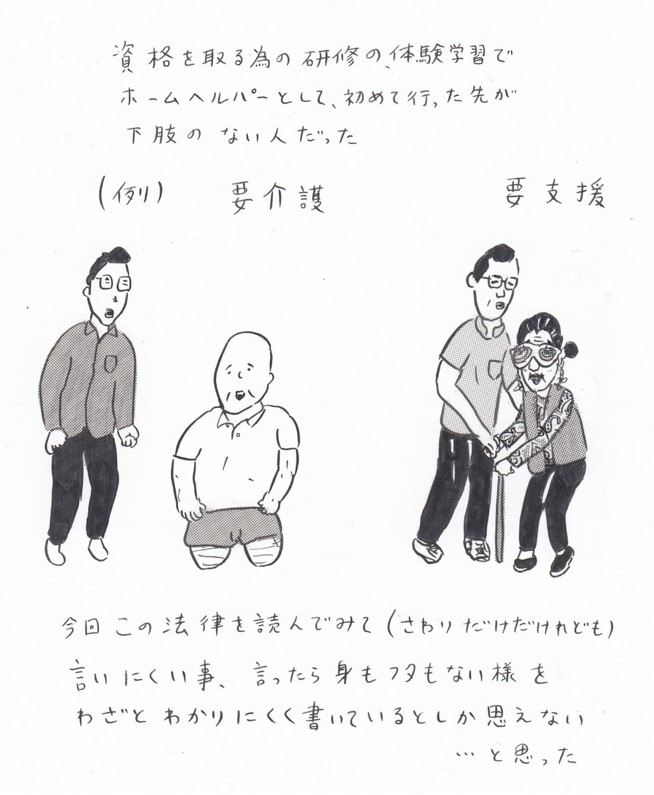 資格を取る為の研修の、体験学習で
ホームヘルパーとして、初めて行った先が
下肢のない人だった
(例) 要介護 要支援
今回この法律を読んでみて(さわりだけだけれども)
言いにくい事、言ったら身もフタもない様を
わざとわかりにくく書いているとしか思えない
…と思った